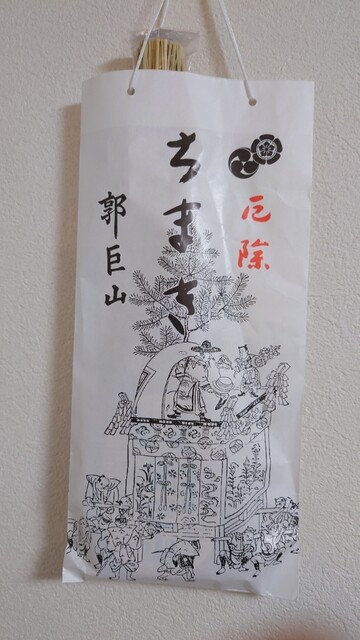 厄除
ちまき
郭巨山